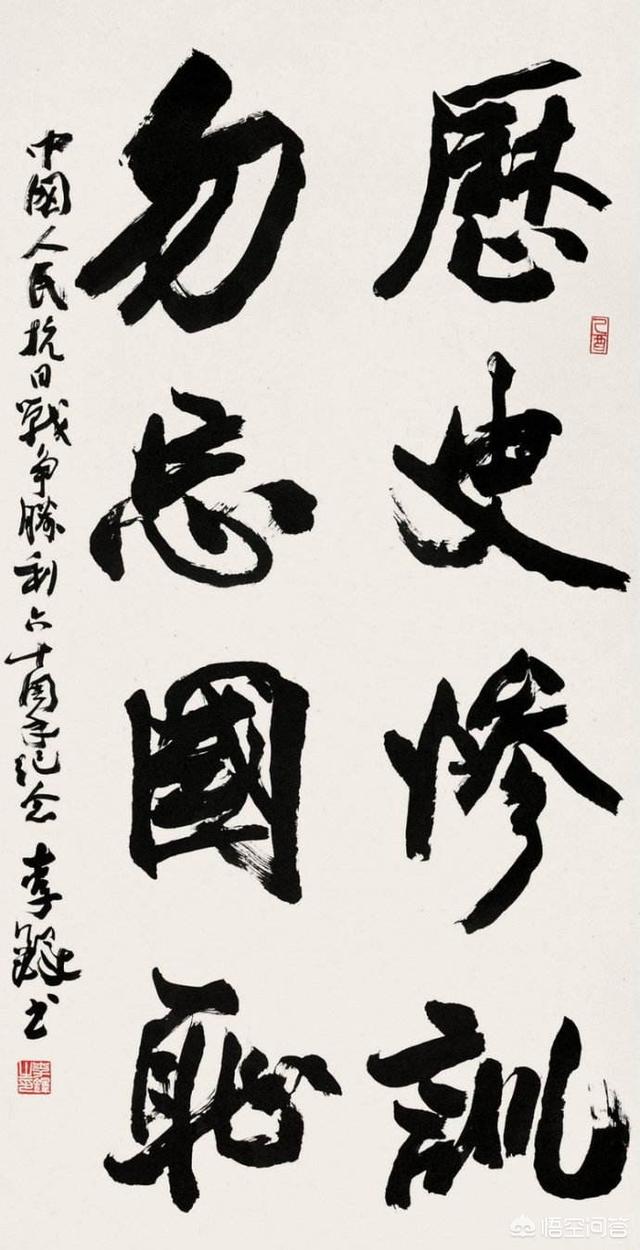 歷史慘訓
乙酉
勿忘國恥
中國人民抗日戰爭勝利六十周年紀念 李鐸书
悟空问答